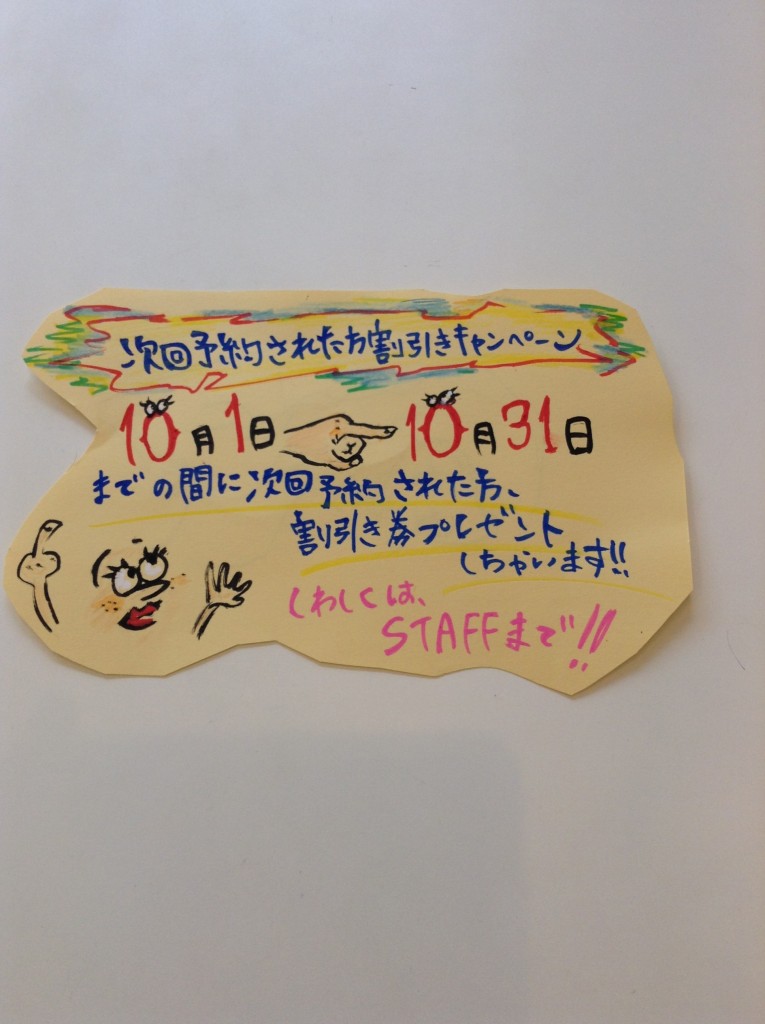 次回予約された方割引きキャンペーン
10月1日 10月31日
までの間に次回予約された方、
割引き券プレゼント
しちゃいます!!
くわしくは、
STAFFまで!!